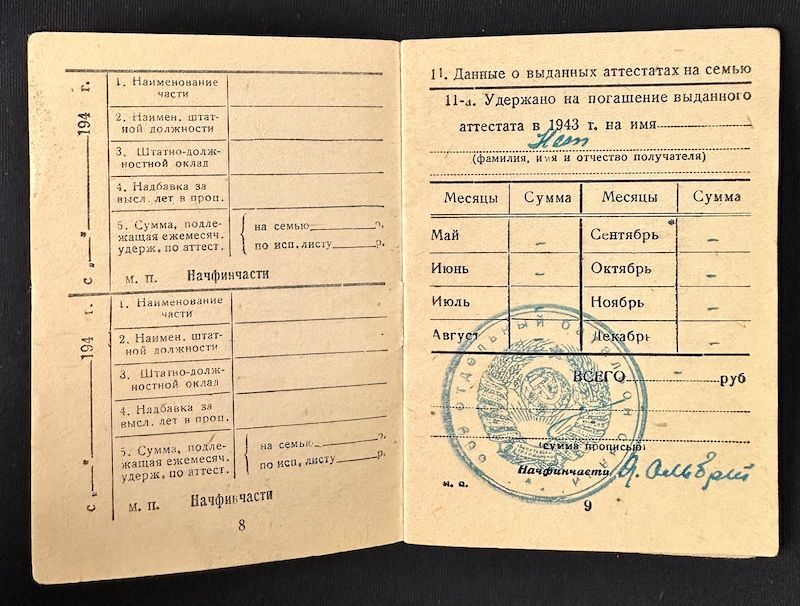 с „ “ 194 г.
1. Наименование
части
2. Наимен. штат-
ной должности
3. Штатно-долж-
ностной оклад
4. Надбавка за
высл. лет в проц.
5. Сумма, подле-
жащая ежемесяч.
удерж. по аттест.
на семью р.
по исп. листу р.
М. П. Начфинчасти
с „ “ 194 г.
1. Наименование
части
2. Наимен. штат-
ной должности
3. Штатно-долж-
ностной оклад
4. Надбавка за
высл. лет в проц.
5. Сумма, подле-
жащая ежемесяч.
удерж. по аттест.
на семью р.
по исп. листу р.
М. П. Начфинчасти
8
11. Данные о выданных аттестатах на семью
11-а. Удержано на погашение выданного
аттестата в 1943 г. на имя
Нет
(фамилия, имя и отчество получателя)
Месяцы Сумма Месяцы Сумма
Май - Сентябрь -
Июнь - Октябрь -
Июль - Ноябрь -
Август Декабрь -
ВСЕГО - руб
сумма прописью
Начфинчасти
м. п.
отдельный батальон
9